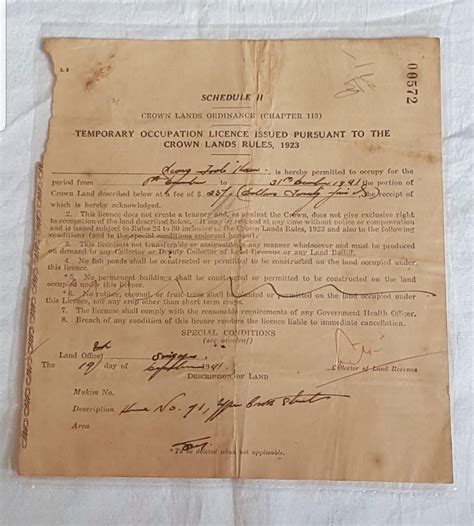 L. 2
00572
SCHEDULE II
CROWN LANDS ORDINANCE (CHAPTER 113)
TEMPORARY OCCUPATION LICENCE ISSUED PURSUANT TO THE
CROWN LANDS RULES, 1923
is hereby permitted to occupy for the
period from to 31st 1941 the portion of
Crown Land described below at a fee of $ the receipt of
which is hereby acknowledged.
2. This licence does not create a tenancy and, as against the Crown, does not give exclusive right
to occupation of the land described below. It may be cancelled at any time without notice or compensation
and is issued subject to Rules 26 to 30 inclusive of the Crown Lands Rules, 1923 and also to the following
conditions (and to the special conditions endorsed hereon).
3. This Licence is not transferable or assignable in any manner whatsoever and must be produced
on demand to any Collector or Deputy Collector of Land Revenue or any Land Bailiff.
4. No fish ponds shall be permitted or constructed or permitted to be constructed on the land occupied under
this licence.
*5. No permanent buildings shall be constructed or permitted to be constructed on the land occupied
under this licence.
*6. No rubber, coconut, or fruit trees shall be planted or permitted to be planted on the land occupied under
this Licence, nor any crop other than short term crops.
7. The licencee shall comply with the reasonable requirements of any Government Health Officer.
8. Breach of any condition of this licence renders the licence liable to immediate cancellation.
SPECIAL CONDITIONS
(See overleaf)
Land Office,
The 19 day of 1941
Collector of Land Revenue
DESCRIPTION OF LAND
Mukim No.
Description House No. 71, Upper Cross Street
Area
*To be deleted when not applicable.